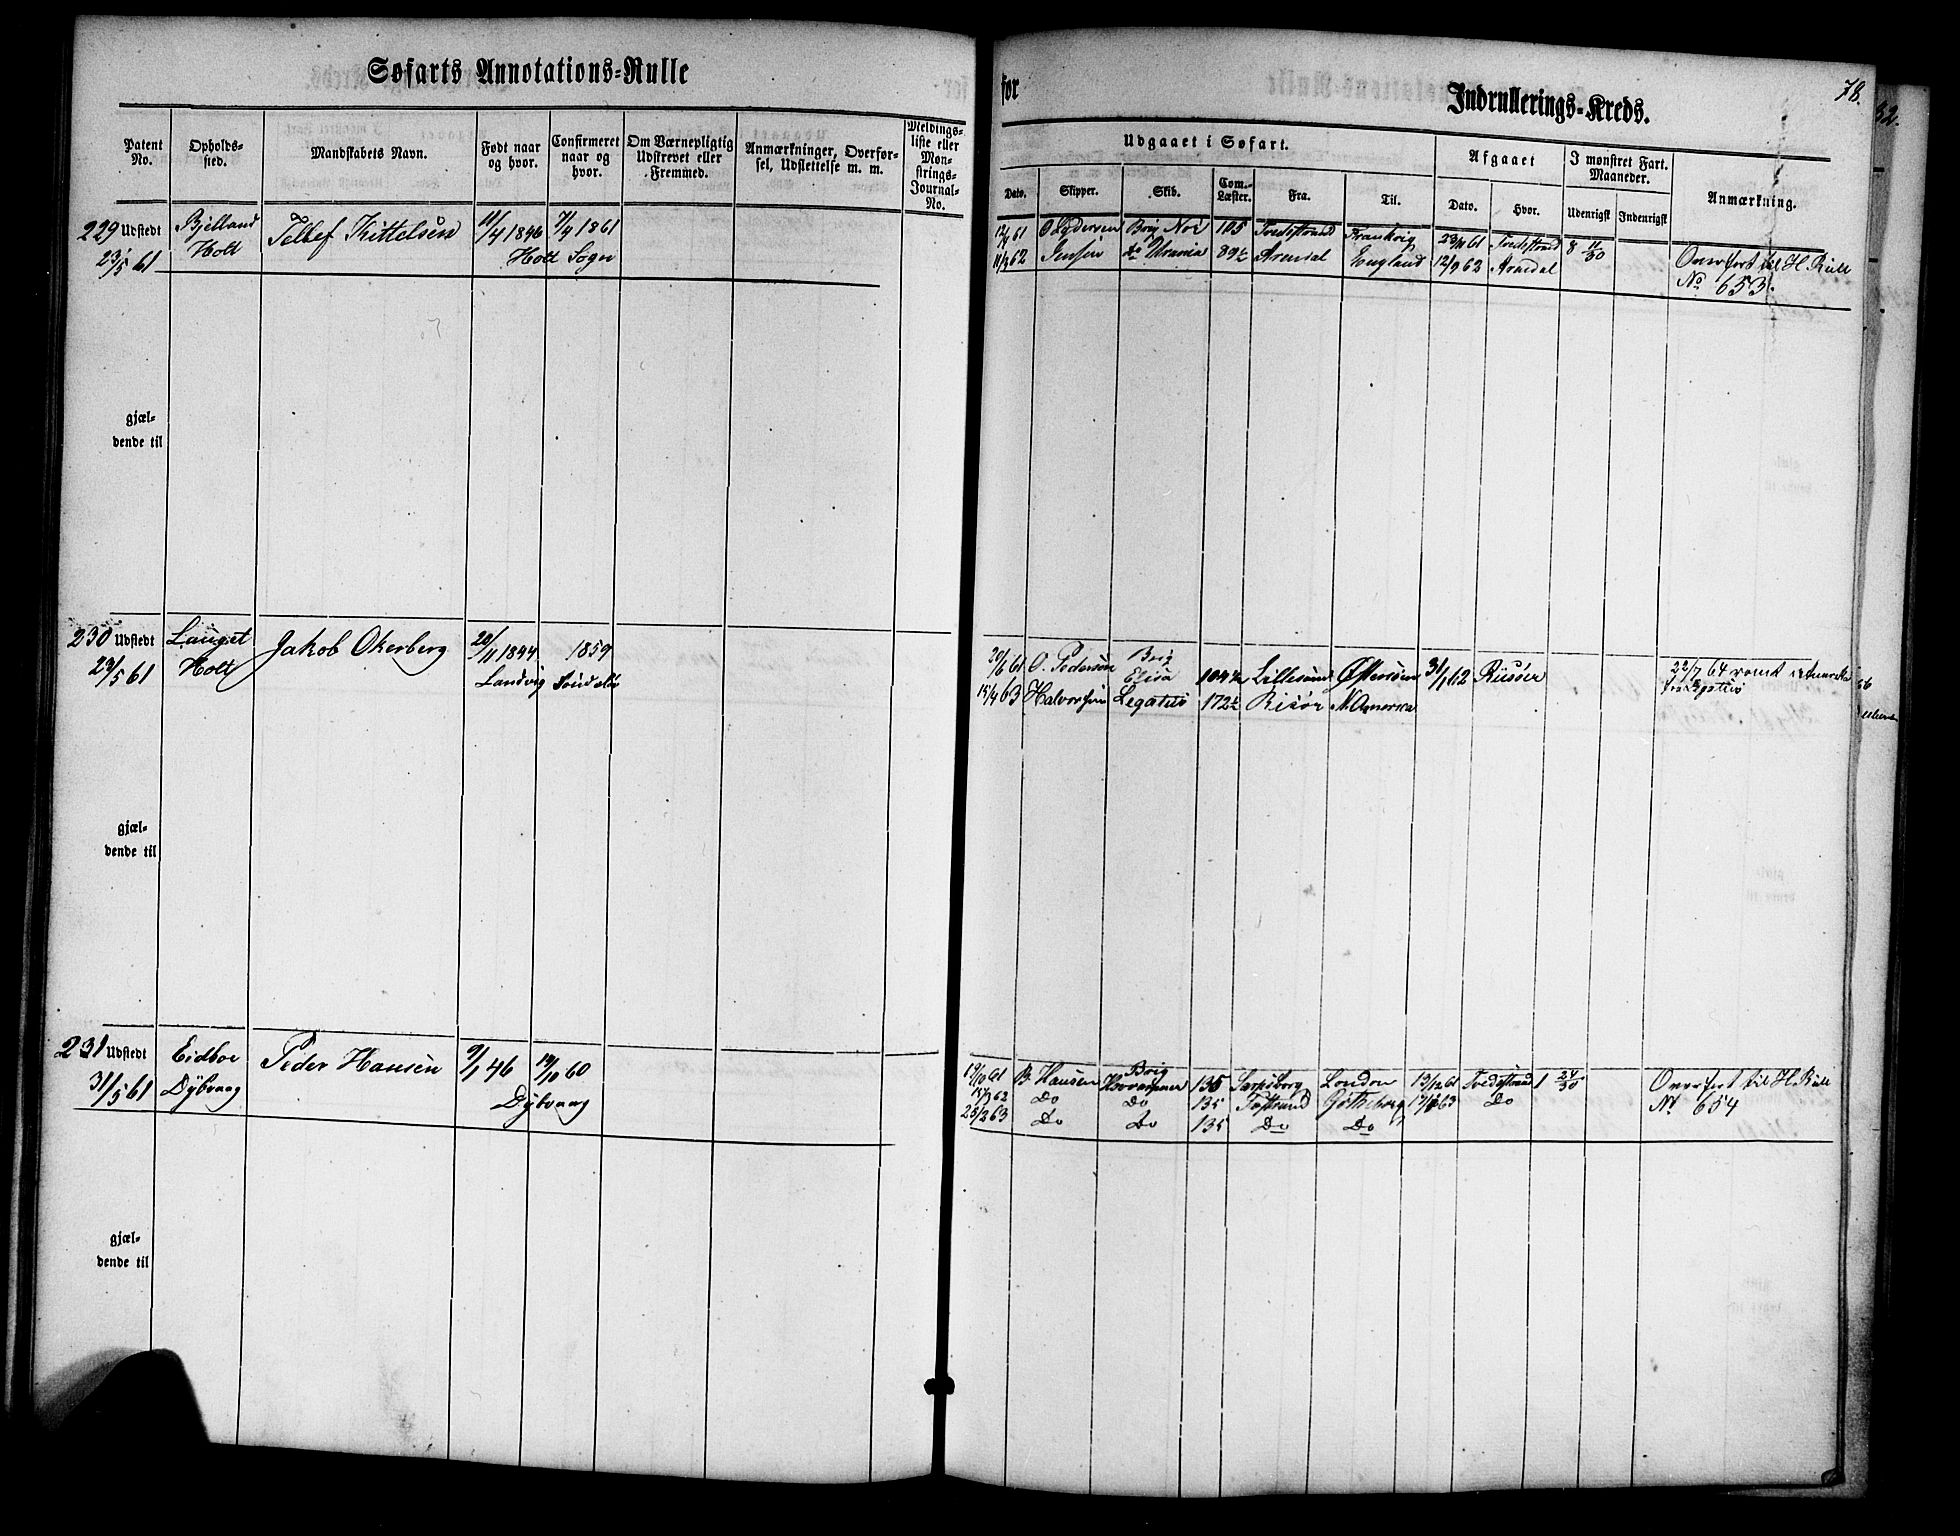 Søfarts Annotations-Rulle
Patent No.
Opholds-sted.
Mandskabets Navn.
Født naar og hvor.
Confirmeret naar og hvor.
Om Værnepligtig Udskrevet eller Fremmed.
Anmærkninger, Overførsel, Udslettelse m. m.
Meldings-liste eller Mon-strings-Journal-No.
229 Udstedt Bjelland Tellef Kittelsen 11/4 1846 7/4 1861
23/5 61 Holt Holt Sogn
gjæl-
dende til
230 Udstedt Lauget Jakob Okerberg 20/11 1844 1859
23/5 61 Holt Landvig
gjæl-
dende til
231 Udstedt Eidboe Peder Hansen 9/1 46 14/10 60
31/5 61 Dybvaag Dybvaag
gjæl-
dende til
for
Indrullerings-Kreds.
78.
82.
Udgaaet i Søfart.
Afgaaet
I mønstret Fart. Maaneder.
Anmærkning.
Dato. Skipper. Skib. Com.-Læster. Fra. Til. Dato. Hvor. Udenrigsk Indenrigsk
61 Brig 105 Tvedestrand Frankrig 61 Tvedestrand 8 11/30
62 Jensen do 89½ Arendal England 12/9 62 Arendal Overført til H. Rull
No 653.
61 O. Pedersen Brig Elisa 104½ Lillesund Østersøen 31/1 62 Riisøer 22/7 64
15/4 63 Halvorsen Legatus 172½ Risør N. America
61 B. Hansen Brig 135 Sarpsborg London 13/12 61 Tvedestrand 1 24/30 Overført til H. Rull
62 Do Do 135 Gøtheborg 63 Do No 654
63 Do Do 135 Do Do